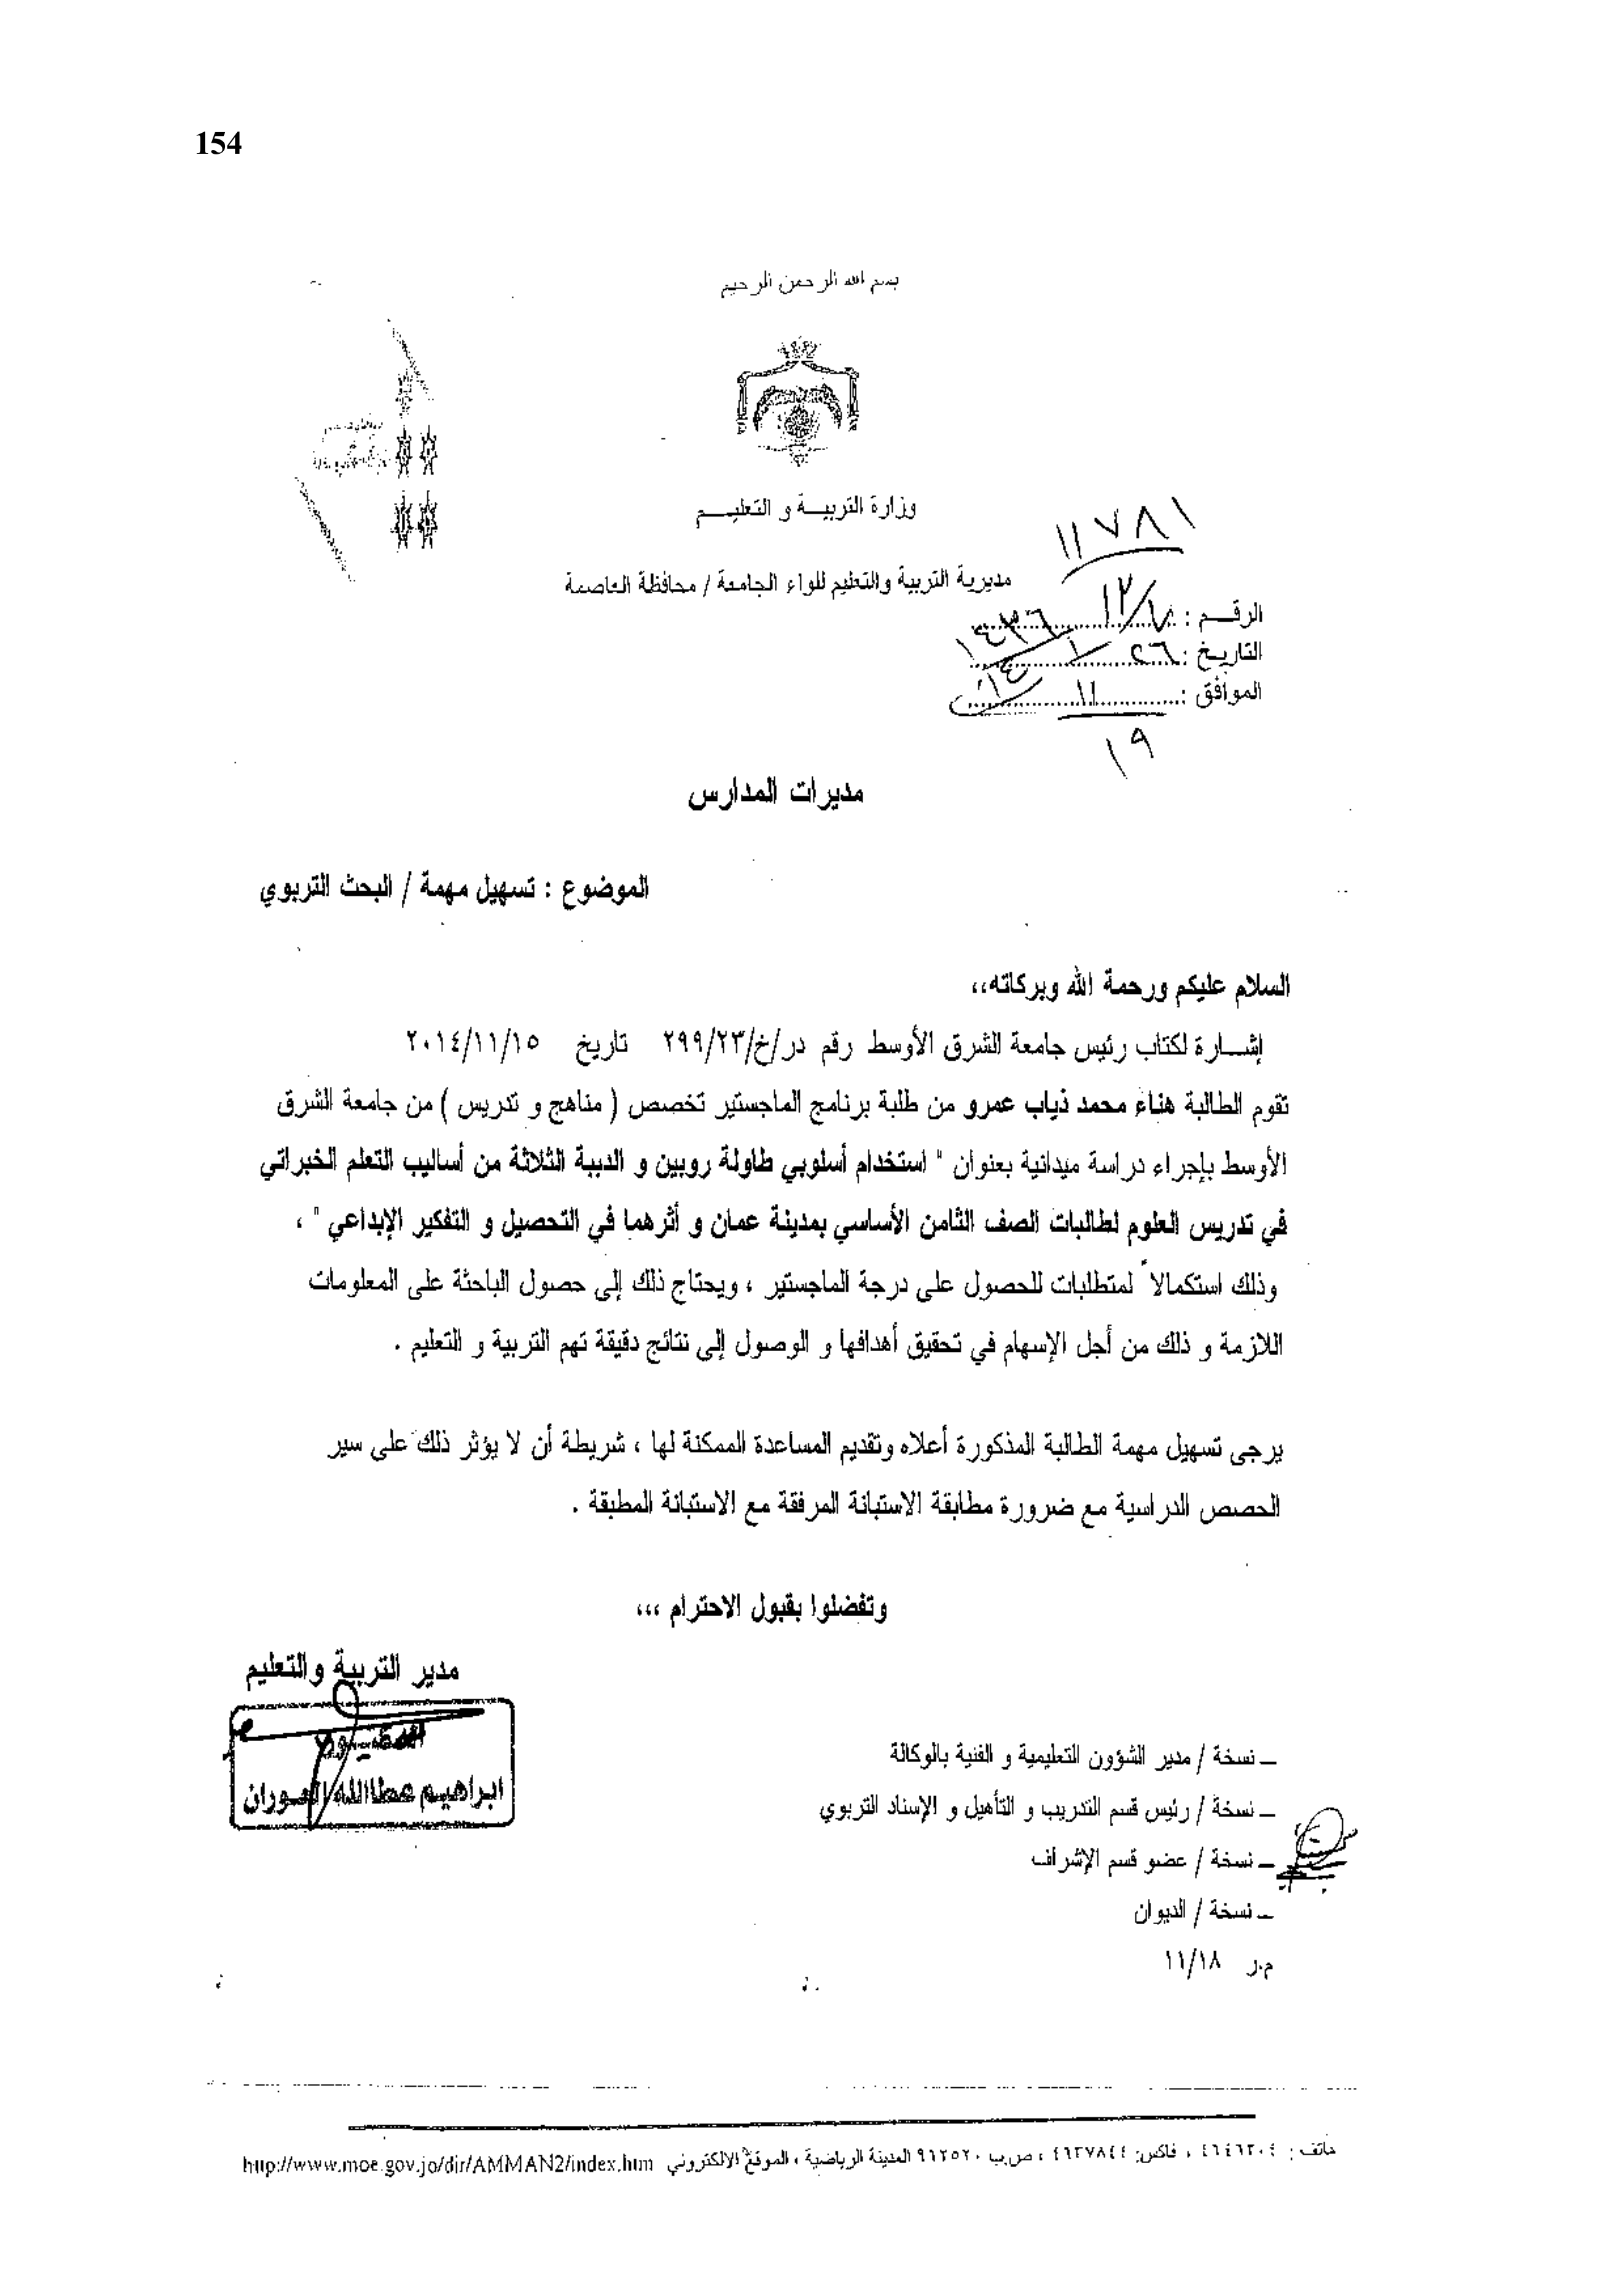 154
بسم الله الرحمن الرحيم
وزارة التربيـــة و التعليـــم
مديرية التربية والتعليم للواء الجامعة / محافظة العاصمة
١١٧٨١
الرقـــم : ١٢/٧٠
التاريـخ : ٢٦ / ١ / ١٤٣٦
الموافق : ١٩ / ١١ / ٢٠١٤
مديرات المدارس
الموضوع : تسهيل مهمة / البحث التربوي
السلام عليكم ورحمة الله وبركاته،،
إشـــارة لكتاب رئيس جامعة الشرق الأوسط رقم در/خ/٢٩٩/٢٣ تاريخ ٢٠١٤/١١/١٥
تقوم الطالبة هناء محمد ذياب عمرو من طلبة برنامج الماجستير تخصص ( مناهج و تدريس ) من جامعة الشرق
الأوسط بإجراء دراسة ميدانية بعنوان " استخدام أسلوبي طاولة روبين و الدببة الثلاثة من أساليب التعلم الخبراتي
في تدريس العلوم لطالبات الصف الثامن الأساسي بمدينة عمان و أثرهما في التحصيل و التفكير الإبداعي " ،
وذلك استكمالاً لمتطلبات للحصول على درجة الماجستير ، ويحتاج ذلك إلى حصول الباحثة على المعلومات
اللازمة و ذلك من أجل الإسهام في تحقيق أهدافها و الوصول إلى نتائج دقيقة تهم التربية و التعليم .
يرجى تسهيل مهمة الطالبة المذكورة أعلاه وتقديم المساعدة الممكنة لها ، شريطة أن لا يؤثر ذلك على سير
الحصص الدراسية مع ضرورة مطابقة الاستبانة المرفقة مع الاستبانة المطبقة .
وتفضلوا بقبول الاحترام ،،،
مدير التربية والتعليم
ابراهيم عطاالله العوران
ـ نسخة / مدير الشؤون التعليمية و الفنية بالوكالة
ـ نسخة / رئيس قسم التدريب و التأهيل و الإسناد التربوي
ـ نسخة / عضو قسم الإشراف
ـ نسخة / الديوان
م.ر ١١/١٨
هاتف : ٤٦٤٦٢٠٤ ، فاكس: ٤٦٢٧٨٤٤ ، ص.ب ٩٦٢٥٢٠ المدينة الرياضية ، الموقع الالكتروني http://www.moe.gov.jo/dir/AMMAN2/index.htm